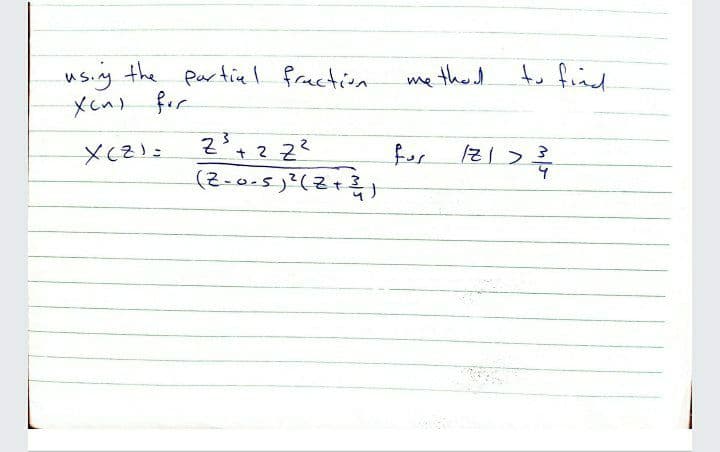 using the partial fraction method to find
x(n) for
X(z) = z³ + 2 z² / (z - 0.5)² (z + 3/4) for |z| > 3/4